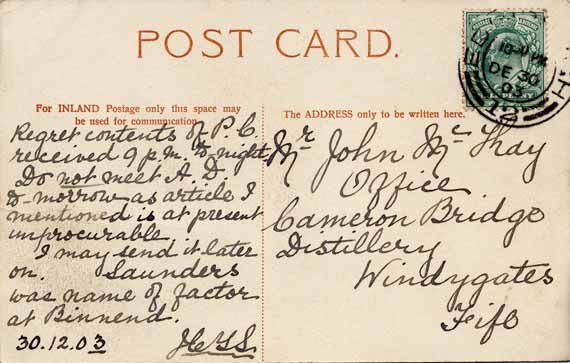 POST CARD.
For INLAND Postage only this space may
be used for communication.
Regret contents of P.C.
received 9 p.m. to-night
Do not meet A. D.
to-morrow as article I
mentioned is at present
unprocurable.
I may send it later
on. Saunders
was name of factor
at Binnend.
30.12.03
The ADDRESS only to be written here.
Mr John Mc
Office
Cameron Bridge
Distillery
Windygates
Fife
DE 30
03